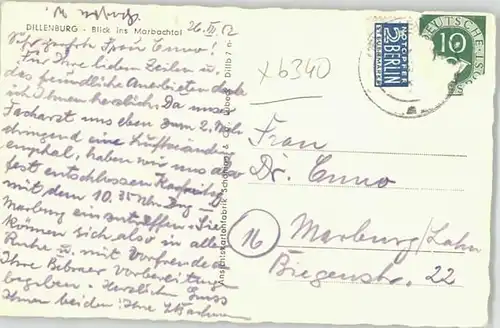 DILLENBURG - Blick ins Marbachtal
26. III. 52
Sehr geehrte Frau Cuno!
Für Ihre lieben Zeilen u.
das freundliche Anerbieten danke
ich Ihnen herzlich. Da unser
Facharzt uns eben zum 2. Mal
dringend eine Luftveränderung
empfahl, haben wir uns also
fest entschlossen
mit dem 10.35 Uhr Zug
Marburg einzutreffen. Sie
können sich also in aller
Ruhe u. mit Vorfreude
Ihre vorbereiten
Herzlich Gruss
Ihnen beiden! Ihre
Ansichtskartenfabrik Schöning & Co., Lübeck Dillb 7 n
x6340
NOTOPFER
2 BERLIN
STEUERMARKE
DEUTSCHE POST
10
Frau
Dr. Cuno
16
Marburg/Lahn
Biegenstr. 22